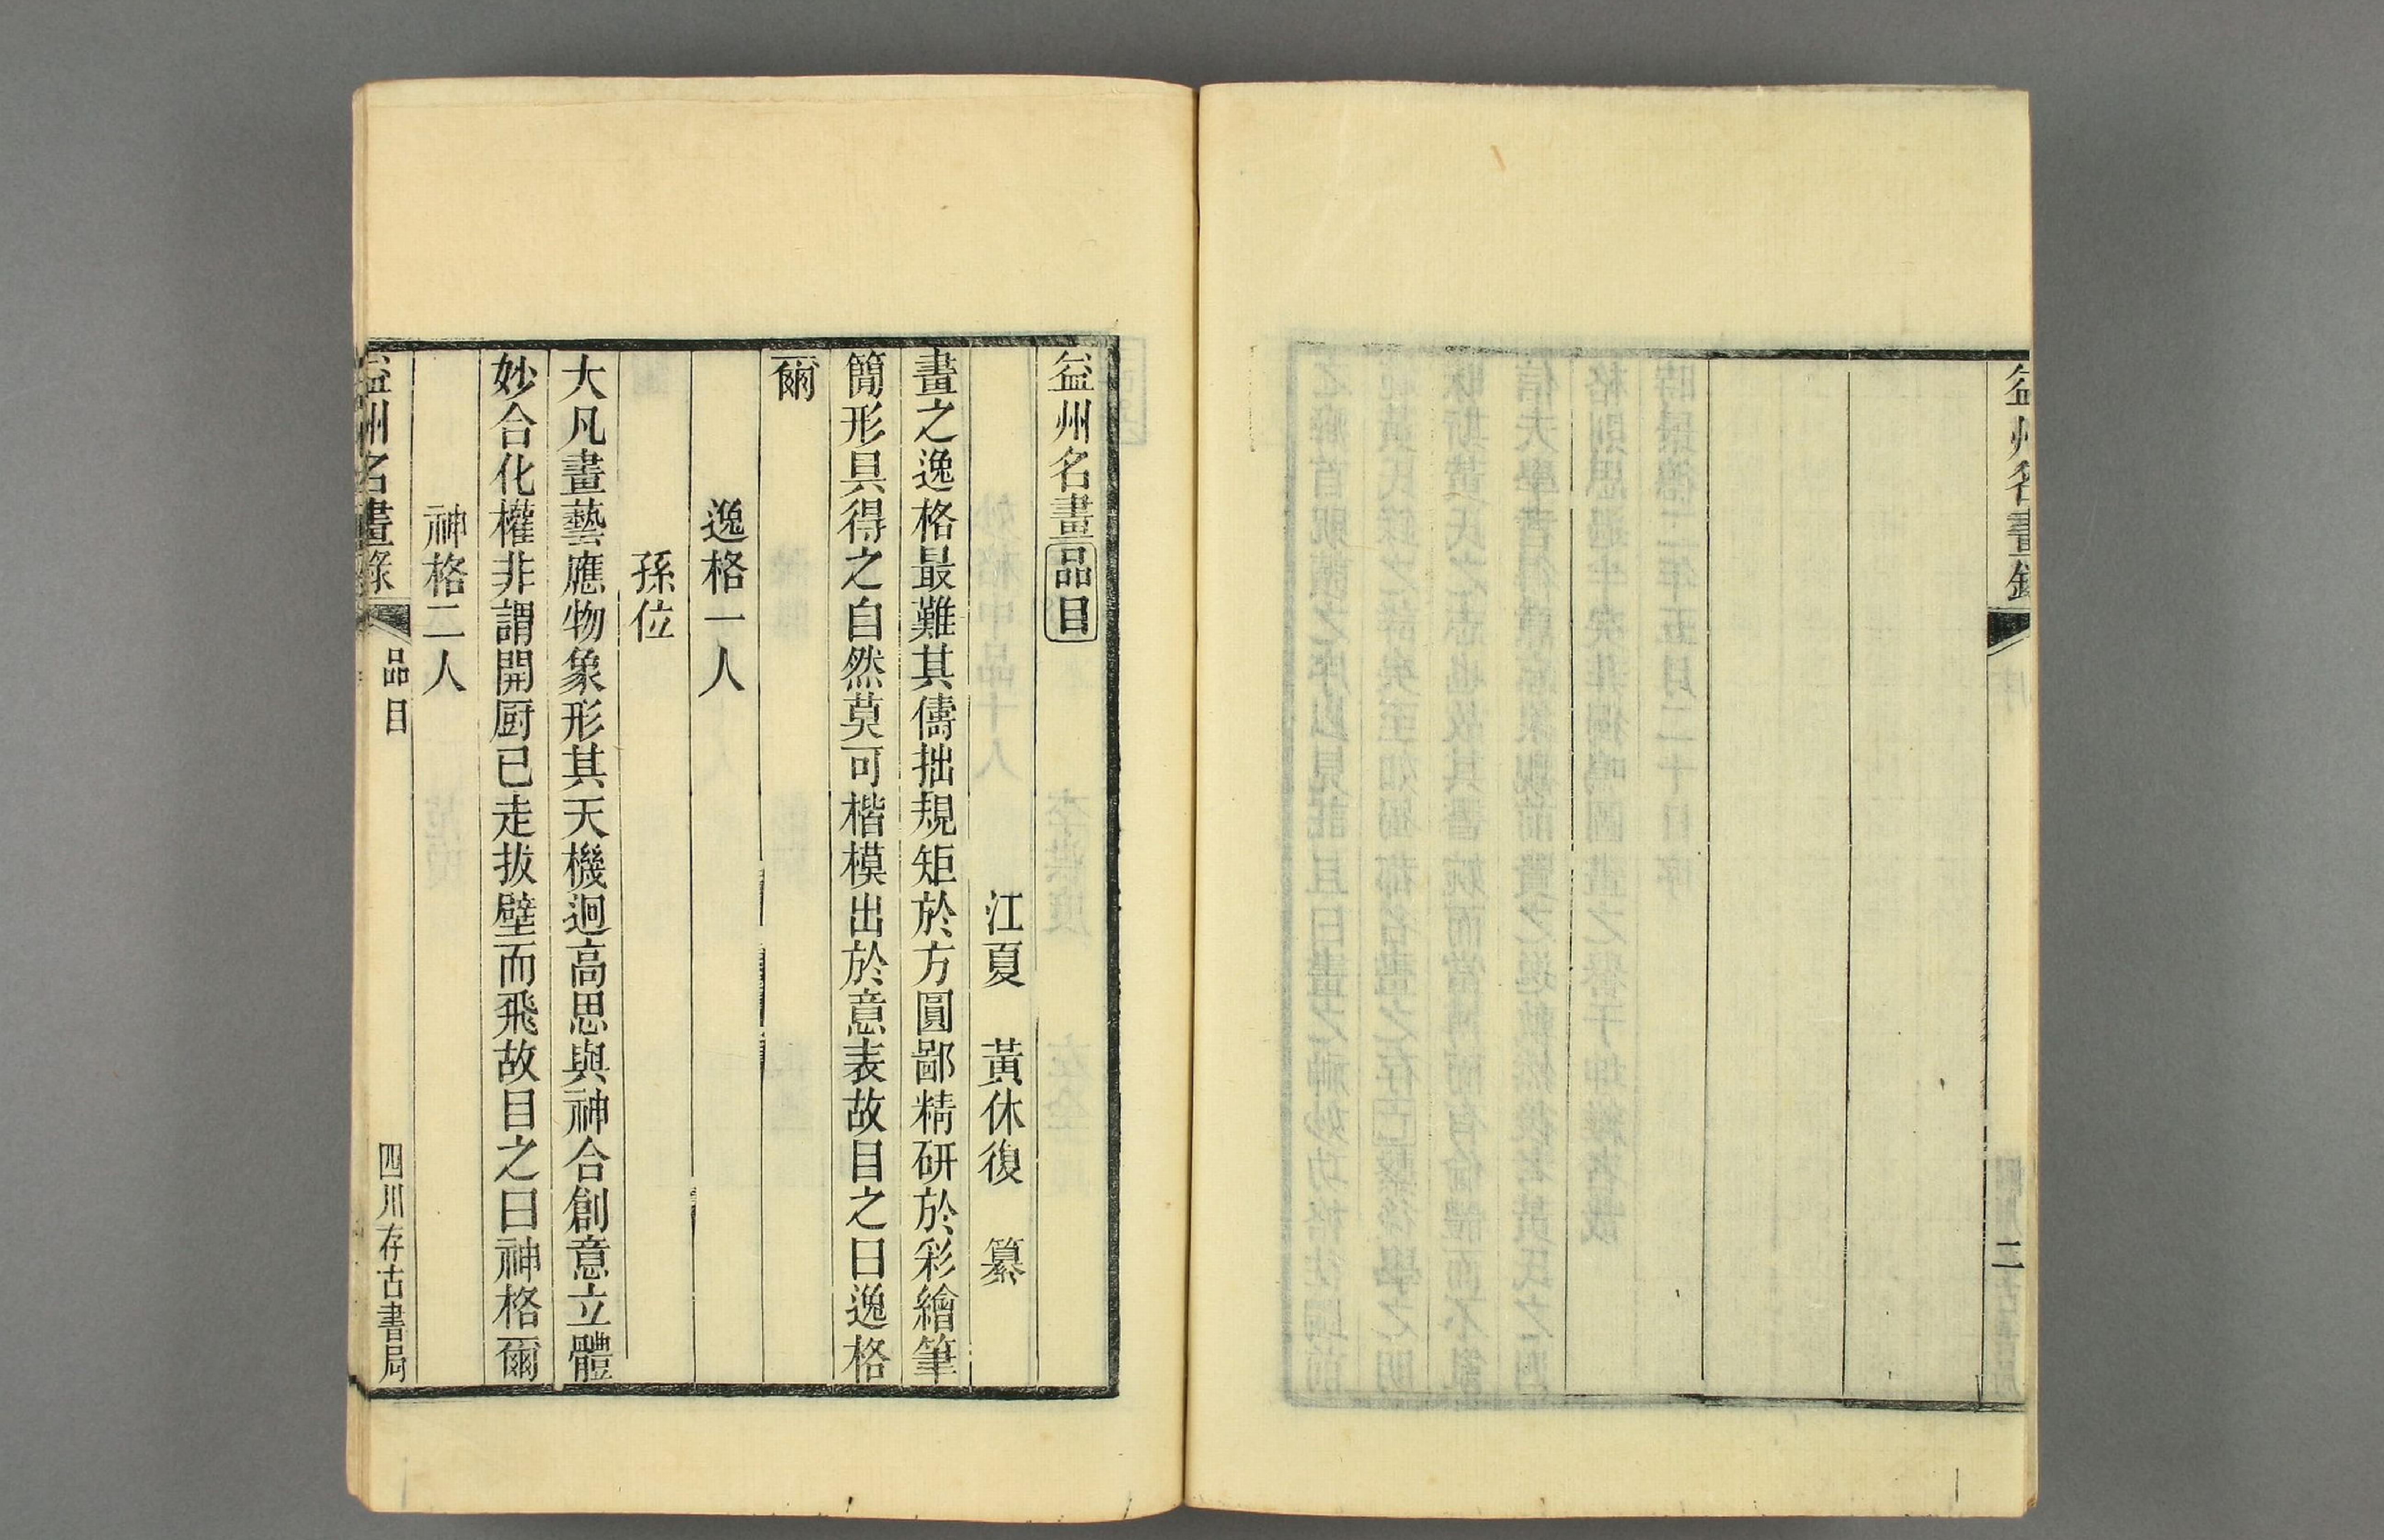 益州名畫錄
二
益州名畫品目
江夏　黃休復　纂
畫之逸格最難其儔拙規矩於方圓鄙精研於彩繪筆
簡形具得之自然莫可楷模出於意表故目之曰逸格
爾
逸格一人
孫位
大凡畫藝應物象形其天機迥高思與神合創意立體
妙合化權非謂開厨已走拔壁而飛故目之曰神格爾
神格二人
益州名畫錄
品目
四川存古書局